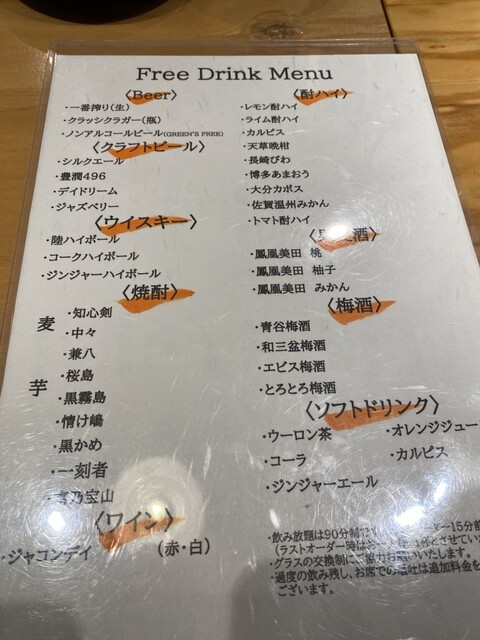 Free Drink Menu
〈Beer〉
・一番搾り(生)
・クラッシクラガー(瓶)
・ノンアルコールビール(GREEN'S FREE)
〈クラフトビール〉
・シルクエール
・豊潤496
・デイドリーム
・ジャズベリー
〈ウイスキー〉
・陸ハイボール
・コークハイボール
・ジンジャーハイボール
〈焼酎〉
麦
・知心剣
・中々
・兼八
芋
・桜島
・黒霧島
・情け嶋
・黒かめ
・一刻者
乃宝山
〈ワイン〉
・ジャコンデイ (赤・白)
〈酎ハイ〉
・レモン酎ハイ
・ライム酎ハイ
・カルピス
・天草晩柑
・長崎びわ
・博多あまおう
・大分カボス
・佐賀温州みかん
・トマト酎ハイ
酒〉
・鳳凰美田 桃
・鳳凰美田 柚子
・鳳凰美田 みかん
〈梅酒〉
・青谷梅酒
・和三盆梅酒
・エビス梅酒
・とろとろ梅酒
〈ソフトドリンク〉
・ウーロン茶 ・オレンジジュー
・コーラ ・カルピス
・ジンジャーエール
・飲み放題は90分制 オーダー15分前
(ラストオーダー時は とさせてい
・グラスの交換制にご協力お願いいたします。
・過度の飲み残し、お席での嘔吐は追加料金を
ございます。